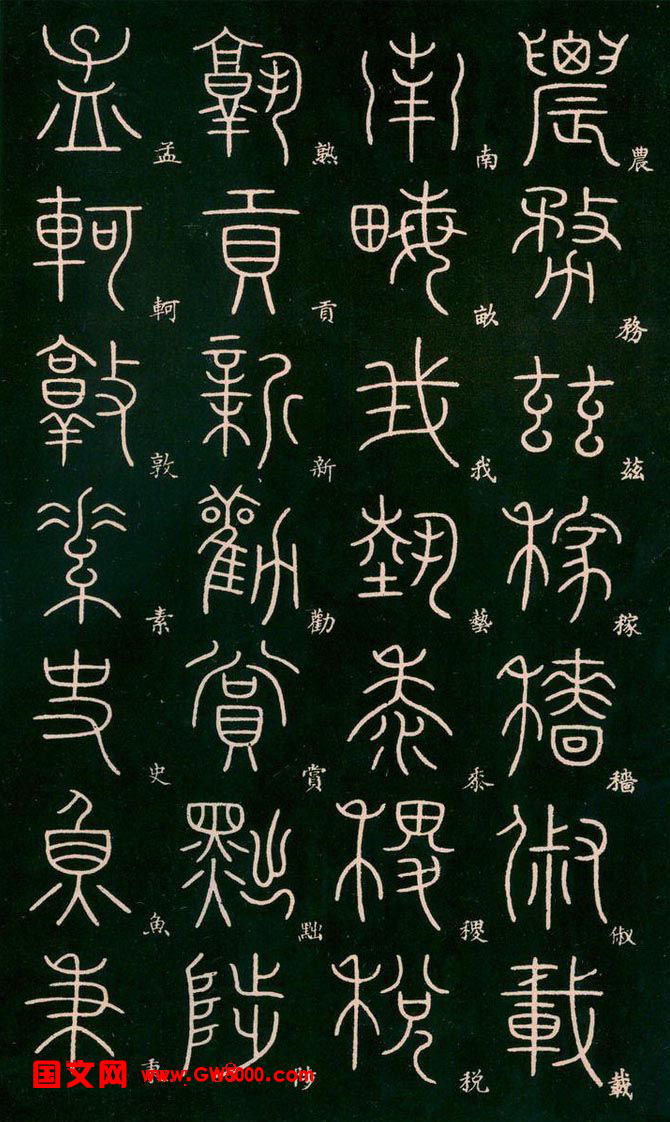 農務茲稼穡俶載
南畝我藝黍稷稅
熟貢新勸賞黜陟
孟軻敦素史魚秉
国文网 www.GW5000.com